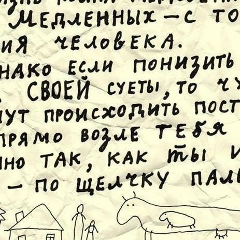 МЕДЛЕННЫХ – С ТО
ИЯ ЧЕЛОВЕКА.
ДНАКО ЕСЛИ ПОНИЗИТЬ
СВОЕЙ СУЕТЫ, ТО ЧУ
УТ ПРОИСХОДИТЬ ПОСТ
ПРЯМО ВОЗЛЕ ТЕБЯ
НО ТАК, КАК ТЫ И
– ПО ЩЕЛЧКУ ПАЛЬ